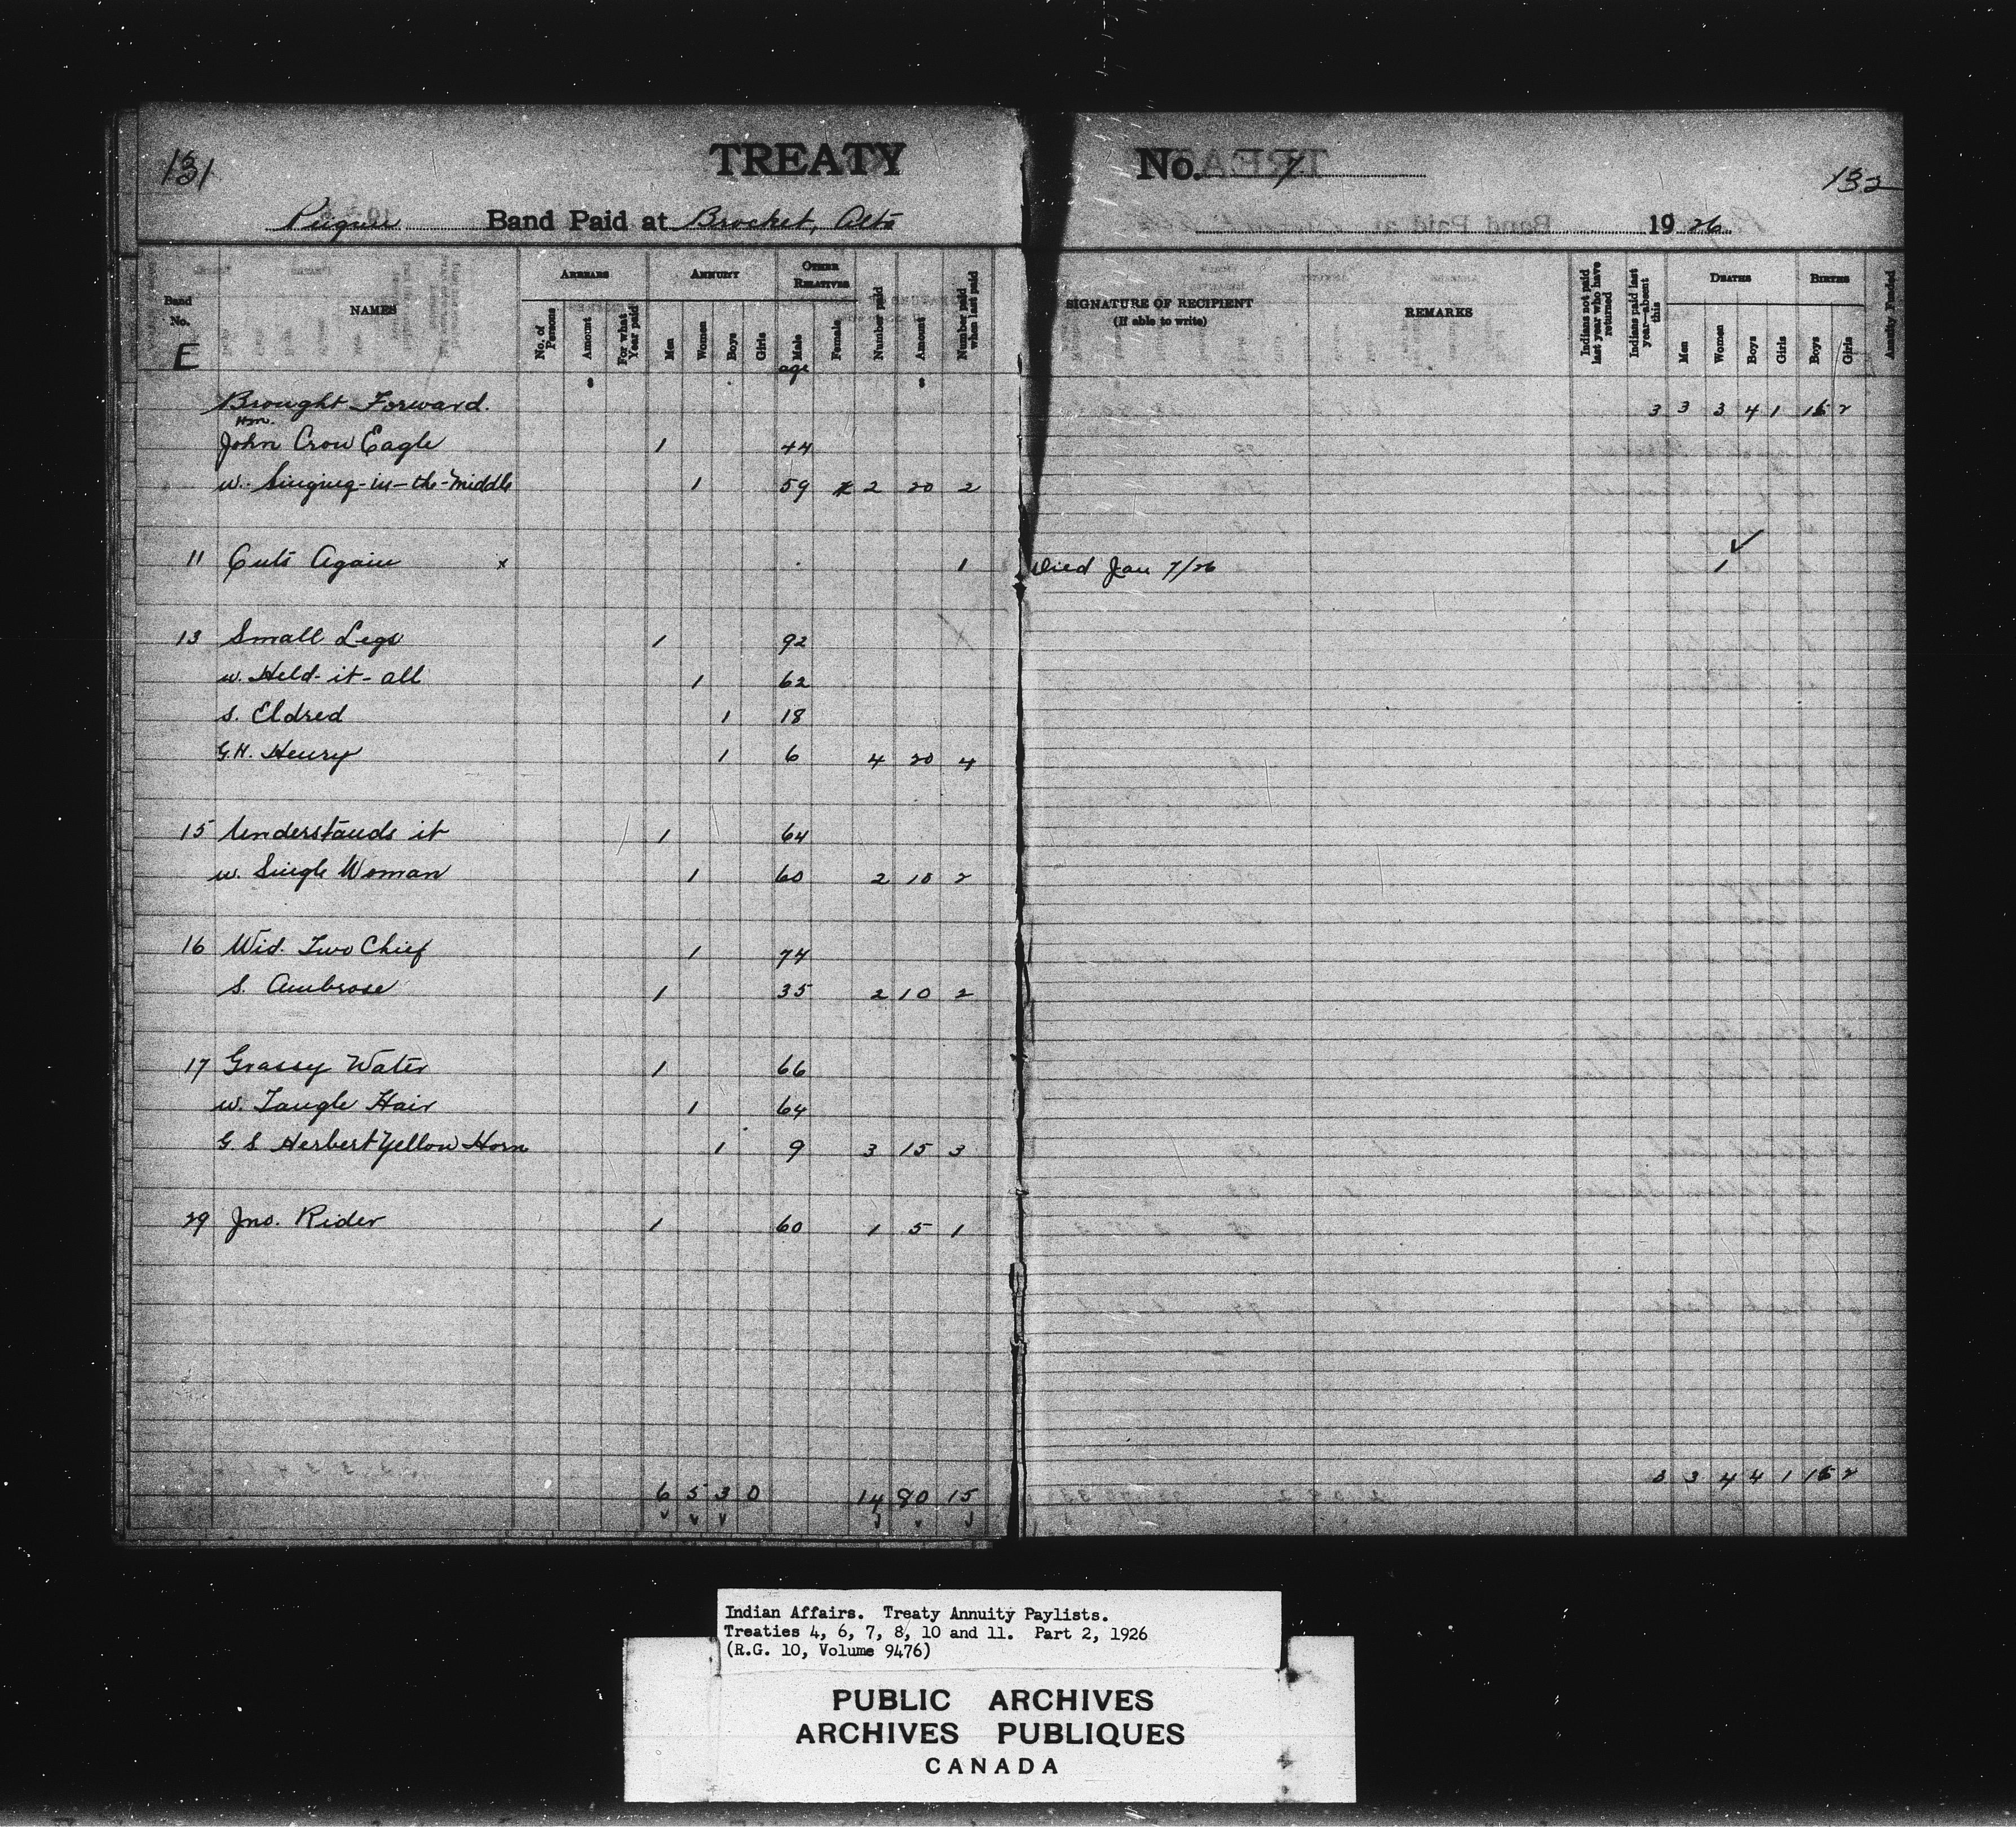 131
TREATY
No. 7
132
Peigan Band Paid at Brocket, Alta
1926
Band No.
E
NAMES
ARREARS
No. of Persons
Amount
For what Year paid
ANNUITY
Men
Women
Boys
Girls
OTHER RELATIVES
Male
Female
age
Number paid
Amount
Number paid when last paid
SIGNATURE OF RECIPIENT
(If able to write)
REMARKS
Indians not paid last year who have returned
Indians paid last year—absent this
DEATHS
Men
Women
Boys
Girls
BIRTHS
Boys
Girls
Annuity Funded
$ $
Brought Forward. 3 3 3 4 1 15 2
Hm.
John Crow Eagle 1 44
w. Singing-in-the-Middle 1 59 2 20 2
11 Cuts Again x 1 Died Jan 7/26 1
13 Small Legs 1 92
w. Held-it-all 1 62
s. Eldred 1 18
G.H. Henry 1 6 4 20 4
15 Understands it 1 64
w. Single Woman 1 60 2 10 2
16 Wid. Two Chief 1 74
S. Ambrose 1 35 2 10 2
17 Grassy Water 1 66
w. Tangle Hair 1 64
G.S Herbert Yellow Horn 1 9 3 15 3
29 Jno. Rider 1 60 1 5 1
6 5 3 0 14 80 15
3 3 4 4 1 15 2
Indian Affairs. Treaty Annuity Paylists.
Treaties 4, 6, 7, 8, 10 and 11. Part 2, 1926
(R.G. 10, Volume 9476)
PUBLIC ARCHIVES
ARCHIVES PUBLIQUES
CANADA